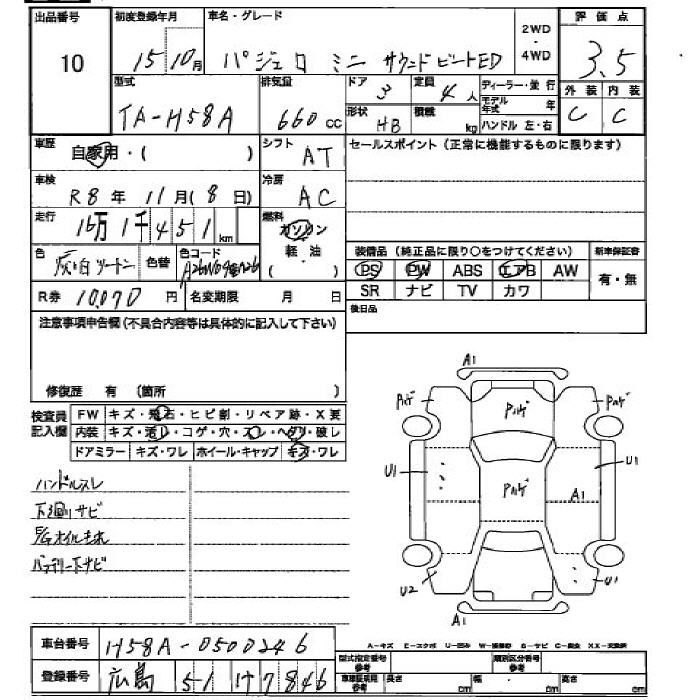 出品番号 初度登録年月 車名・グレード 2WD・4WD 評価点
10 15 10月 パジェロ ミニ サウンドビートED 3.5
型式 排気量 ドア 定員 ディーラー・並行 外装 内装
TA-H58A 660cc 3 4人 モデル年式 年 C C
形状 積載 ハンドル 左・右
HB kg
車歴 自家用・( ) シフト AT セールスポイント(正常に機能するものに限ります)
車検 R8年 11月(8日) 冷房 AC
走行 16万1千451km 燃料 ガソリン 軽・油 ( )
装備品(純正品に限り○をつけてください) 新車保証書
色 灰白ツートン 色替 色コード PS PW ABS エアB AW 有・無
SR ナビ TV カワ
R券 10,070円 名変期限 月 日 後日品
注意事項申告欄(不具合内容等は具体的に記入して下さい)
修復歴 有 (箇所 )
検査員記入欄 FW キズ・飛石・ヒビ割・リペア跡・X要
内装 キズ・汚レ・コゲ・穴・スレ・ヘタリ・破レ
ドアミラー キズ・ワレ ホイール・キャップ キズ・ワレ
ハンドルスレ
下廻リサビ
E/Gオイルモレ
バッテリー下サビ
A1
ハゲ ハゲ ハゲ
U1 ハゲ A1 U1
U2 U1
A1
車台番号 H58A-0500246
A-キズ E-エクボ U-凹み S-サビ
登録番号 広島 51 け 7846
型式指定番号 参考 類別区分番号 参考
車庫証明用 参考 長さ cm 幅 cm 高さ cm